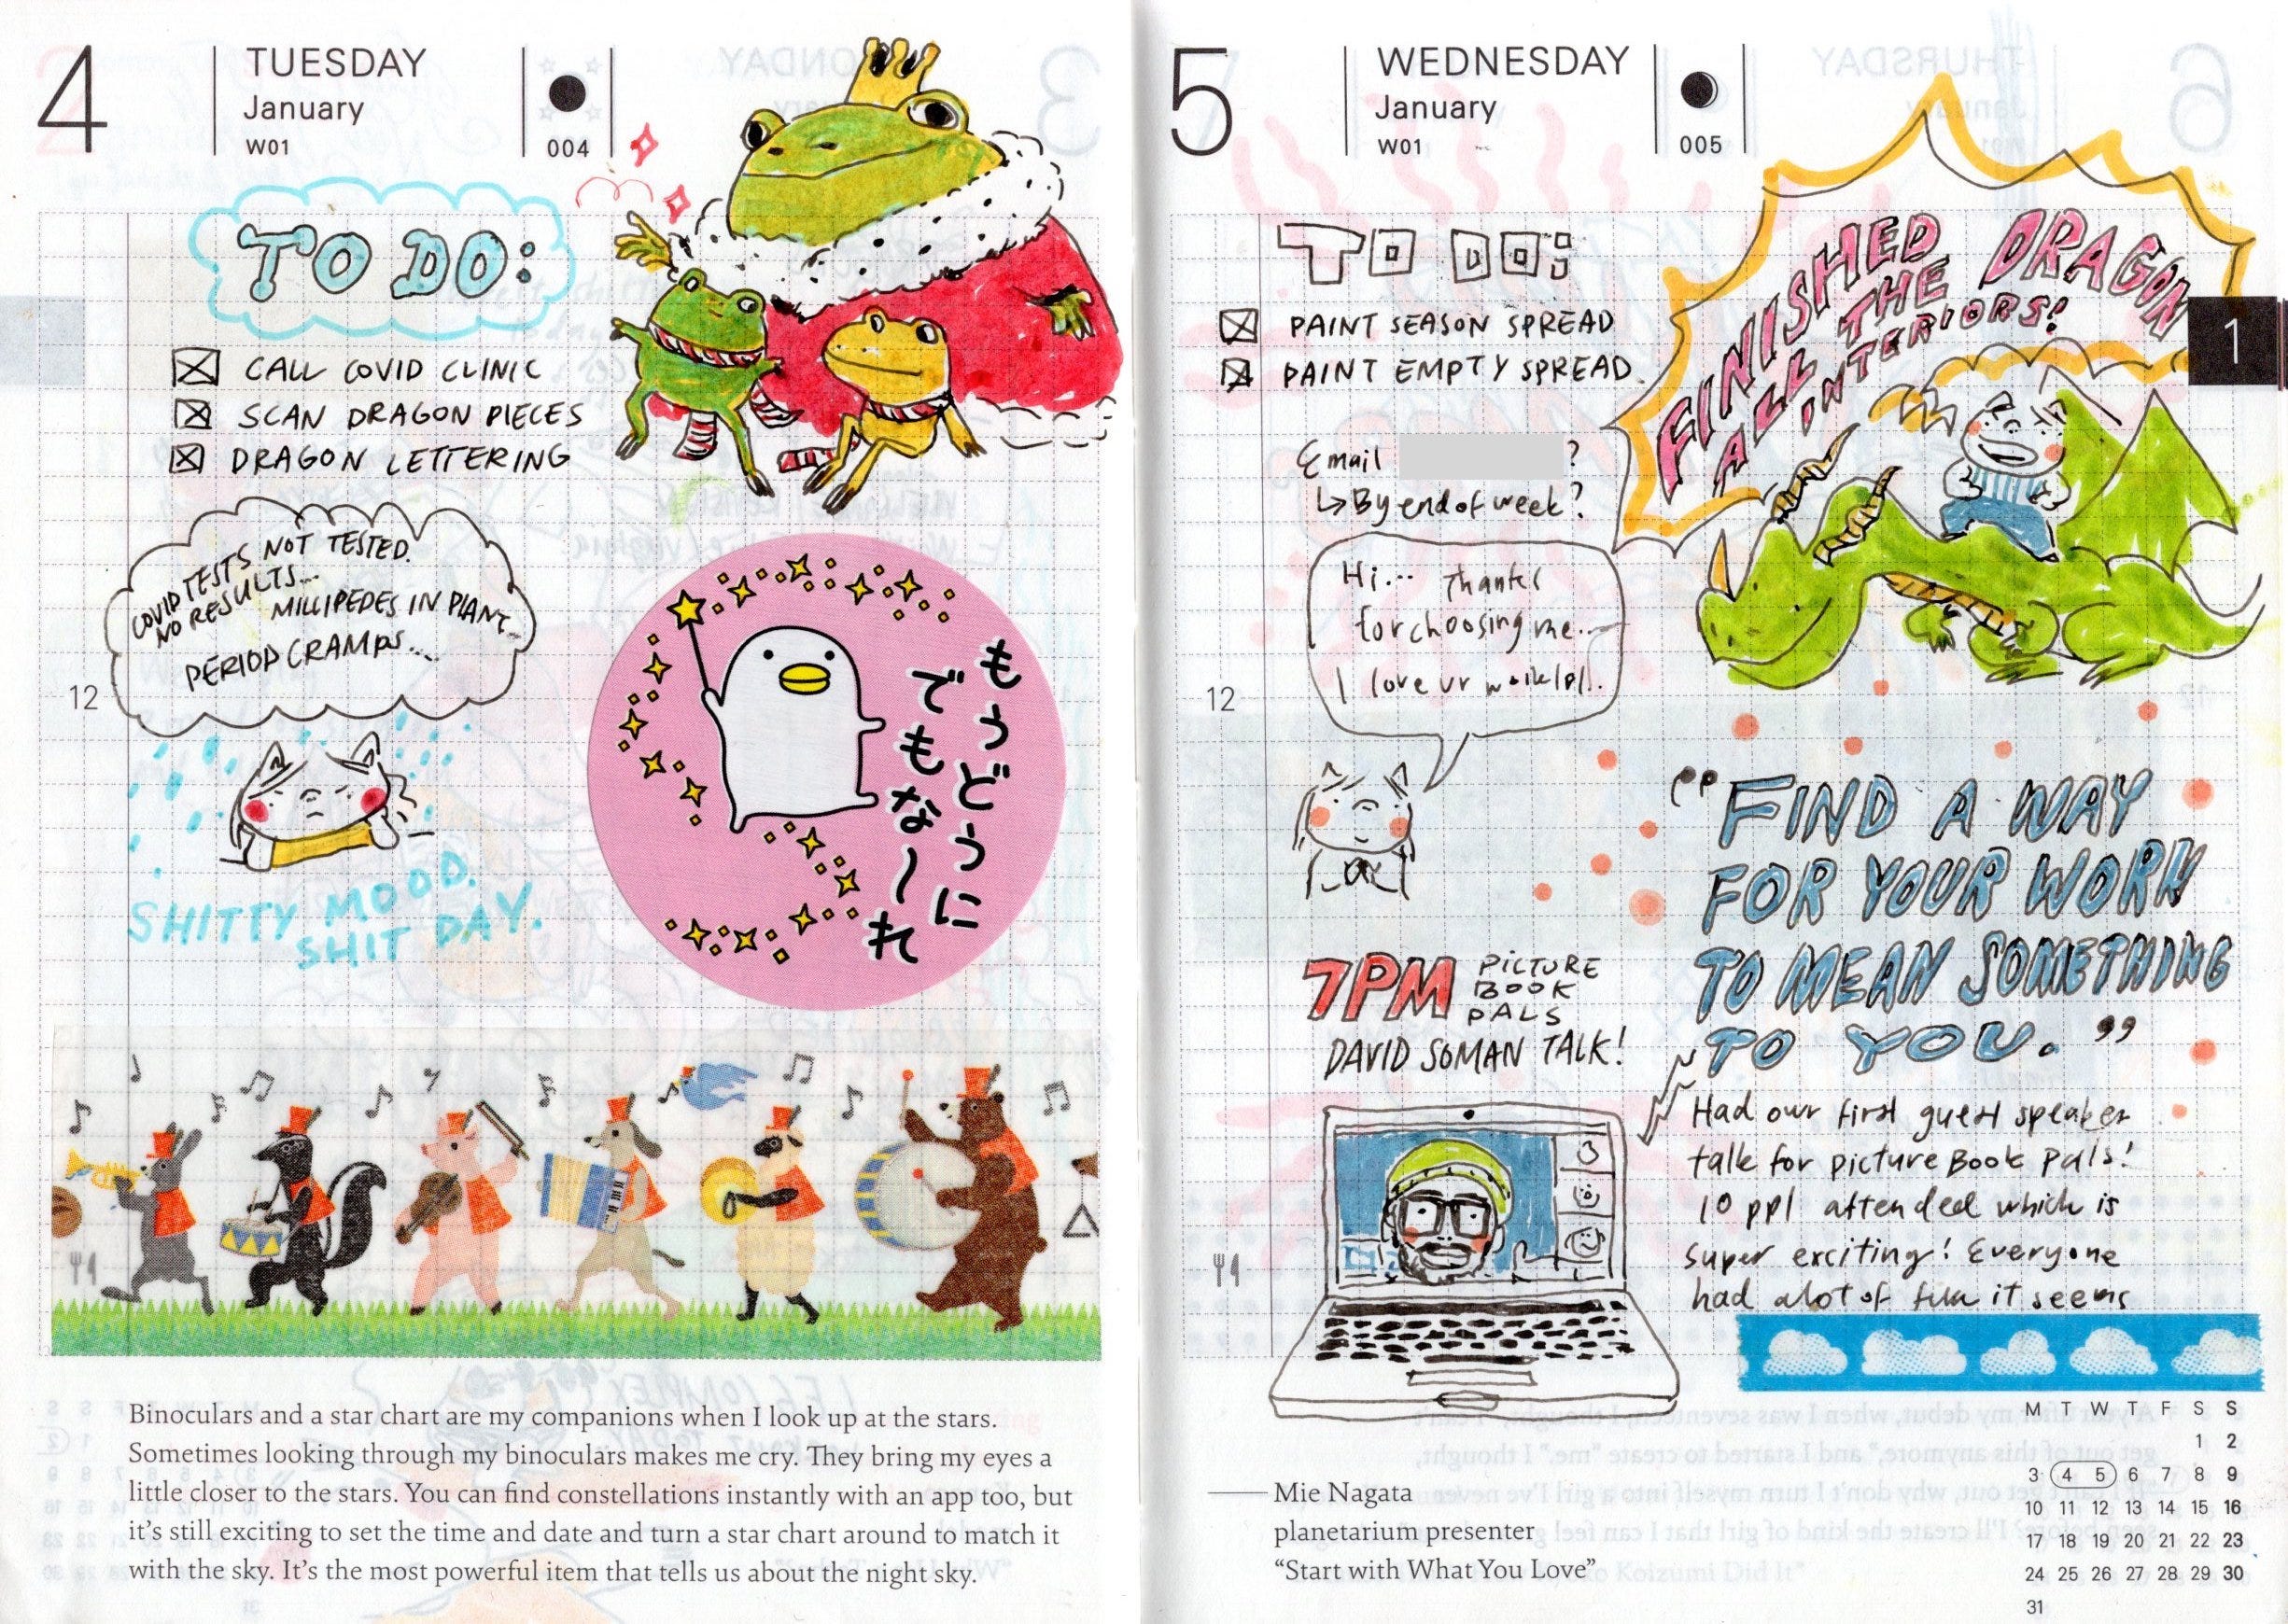 4
TUESDAY
January
W01
004
TO DO:
CALL COVID CLINIC
SCAN DRAGON PIECES
DRAGON LETTERING
COVID TESTS NOT TESTED.
NO RESULTS...
MILLIPEDES IN PLANT...
PERIOD CRAMPS...
12
SHITTY MOOD.
SHIT DAY.
もうどうに
でもな〜れ
Binoculars and a star chart are my companions when I look up at the stars.
Sometimes looking through my binoculars makes me cry. They bring my eyes a
little closer to the stars. You can find constellations instantly with an app too, but
it's still exciting to set the time and date and turn a star chart around to match it
with the sky. It's the most powerful item that tells us about the night sky.
5
WEDNESDAY
January
W01
005
TO DO:
PAINT SEASON SPREAD
PAINT EMPTY SPREAD
FINISHED
ALL THE DRAGON
INTERIORS!
1
Email ?
↳By end of week?
Hi... Thanks
for choosing me...
I love ur work
12
"FIND A WAY
FOR YOUR WORK
TO MEAN SOMETHING
TO YOU."
7PM PICTURE
BOOK
PALS
DAVID SOMAN TALK!
Had our first guest speaker
talk for picture Book pals!
10 ppl attended which is
super exciting! Everyone
had alot of fun it seems
Mie Nagata
planetarium presenter
"Start with What You Love"
M T W T F S S
1 2
3 4 5 6 7 8 9
10 11 12 13 14 15 16
17 18 19 20 21 22 23
24 25 26 27 28 29 30
31